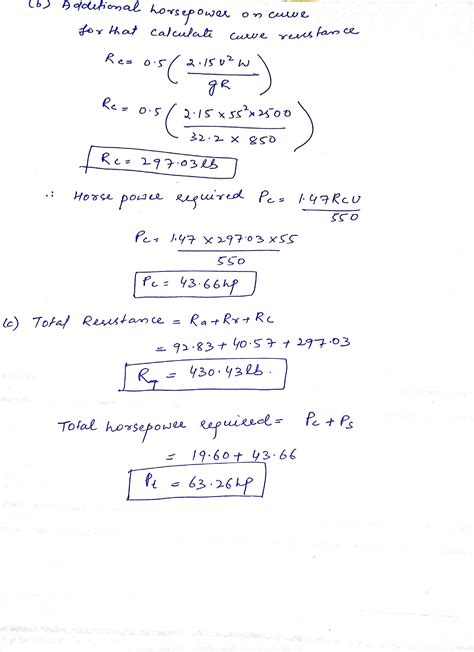 (b) Additional horsepower on curve
for that calculate curve resistance
Rc = 0.5 ( 2.15 U² W / gR )
Rc = 0.5 ( 2.15 × 55² × 2500 / 32.2 × 850 )
Rc = 297.03 lb
∴ Horse power required Pc = 1.47 Rc U / 550
Pc = 1.47 × 297.03 × 55 / 550
Pc = 43.66 hp
(c) Total Resistance = Ra + Rr + Rc
= 92.83 + 40.57 + 297.03
R = 430.43 lb.
Total horsepower required = Pc + Ps
= 19.60 + 43.66
Pt = 63.26 hp